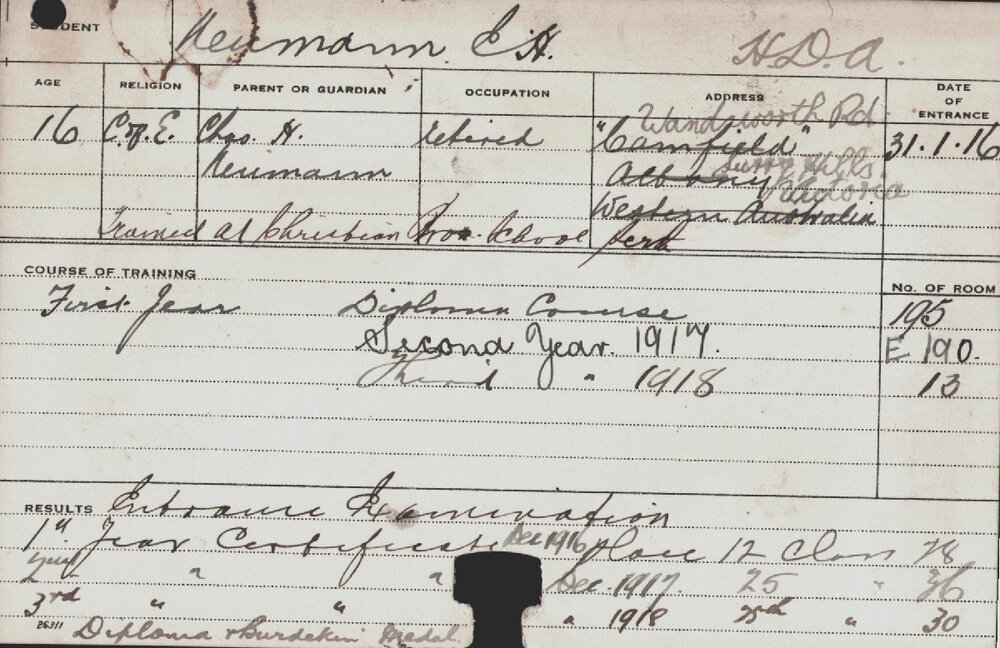 STUDENT Neumann. E H. H.D.A.
AGE RELIGION PARENT OR GUARDIAN OCCUPATION ADDRESS DATE OF ENTRANCE
Wandsworth Rd
16 C. of E. Chas H. retired "Camfield" 31.1.16
Surry Hills
Neumann Albany Victoria
Western Australia
Trained at Christian Bros. School Perth
COURSE OF TRAINING No. OF ROOM
First Year Diploma Course 195
Second Year. 1917. E 190.
Third " 1918 13
RESULTS Entrance Examination
1st. Year Certificate Dec 1916 Place 12 Class 78
2nd " " Dec. 1917. 25 " 36
3rd " " " 1918 25th " 30
26311 Diploma & Burdekin Medal.